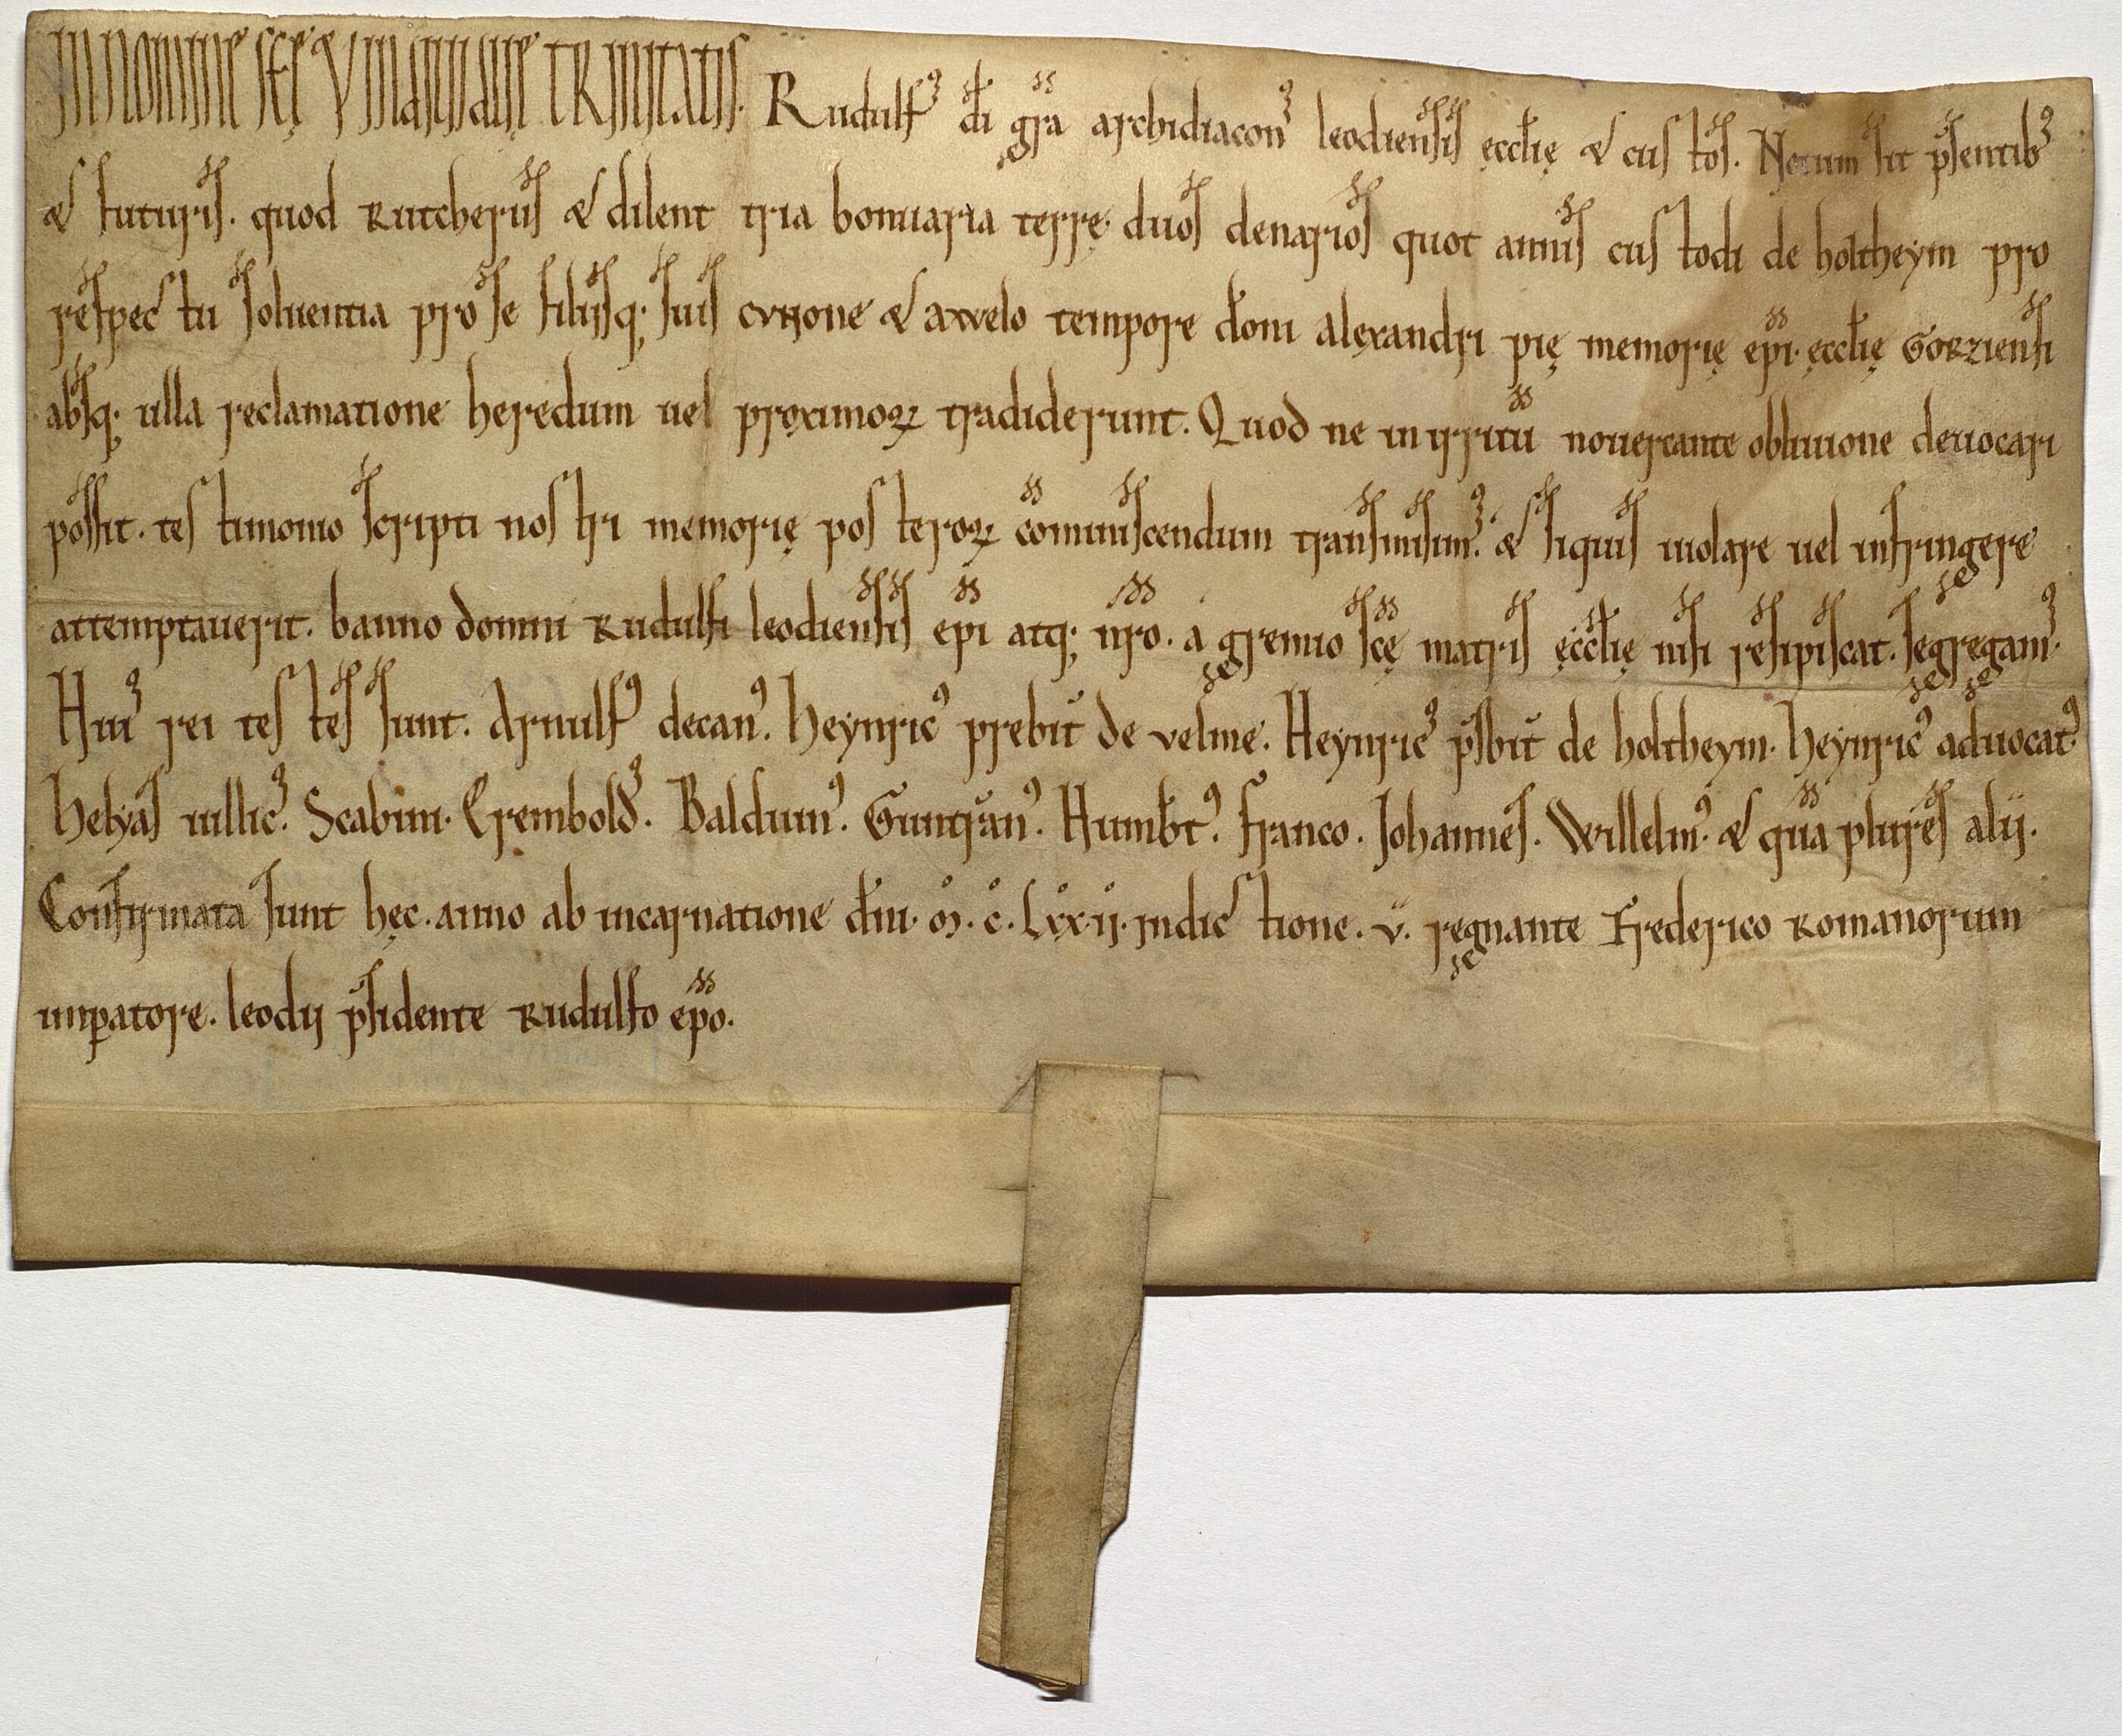 IN NOMINE SCĘ & Y INDIVIDUĘ TRINITATIS. Rudulfꝰ di gra archidiaconꝰ leodiensis ęcclię & custos. Notum sit p̄sentibꝰ
& futuris. quod Rutcherus & dilent tria bonuaria terrę. duos denarios quot annis custodi de holtheym pro
respectu soluentia pro se filiisq; suis cvnone & awelo tempore dom̄ alexandri pię memorię ep̄i. ęcclię Gorziensi
absq; ulla reclamatione heredum uel proximoꝝ tradiderunt. Quod ne in irritū nouercante obliuione deuocari
possit. testimonio scripti nostri memorię posteroꝝ cōminiscendum transmisimꝰ. & siquis uiolare uel infringere
attemptauerit. banno domni Rudulfi leodiensis ep̄i atq; nr̄o. a gremio scę matris ęcclię nisi resipiscat. segregamꝰ.
Huiꝰ rei testes sunt. Arnulfꝰ decanꝰ. Heynricꝰ prebit̄ de velme. Heynricꝰ p̄sbit̄ de holtheym. Heynricꝰ aduocatꝰ.
Helyas uillicꝰ. Scabini. Eremboldꝰ. Balduinꝰ. Guntrānꝰ. Humbt̄ꝰ. Franco. Johannes. Willelmꝰ. & quā plures alii.
Confirmata sunt hęc. anno ab incarnatione dn̄i. m̊. c̊. Lxx̊.ii. indictione. v. regnante Frederico Romanorum
imꝑatore. leodii p̄sidente Rudulfo ep̄o.